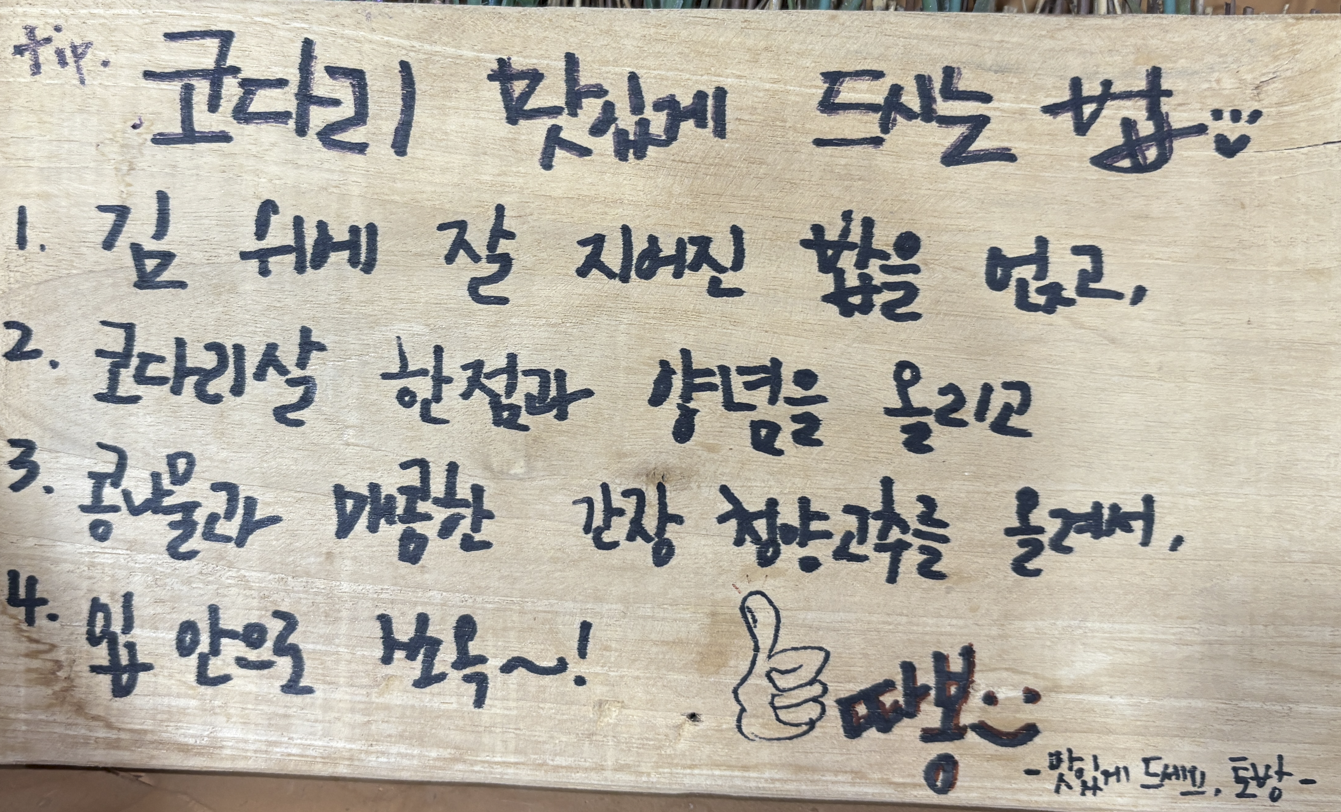 tip. 코다리 맛있게 드시는 법
1. 김 위에 잘 지어진 밥을 얹고,
2. 코다리살 한점과 양념을 올리고
3. 콩나물과 매콤한 간장 청양고추를 올려서,
4. 입 안으로 쏘옥~!
따봉
-맛있게 드세요, 토방-